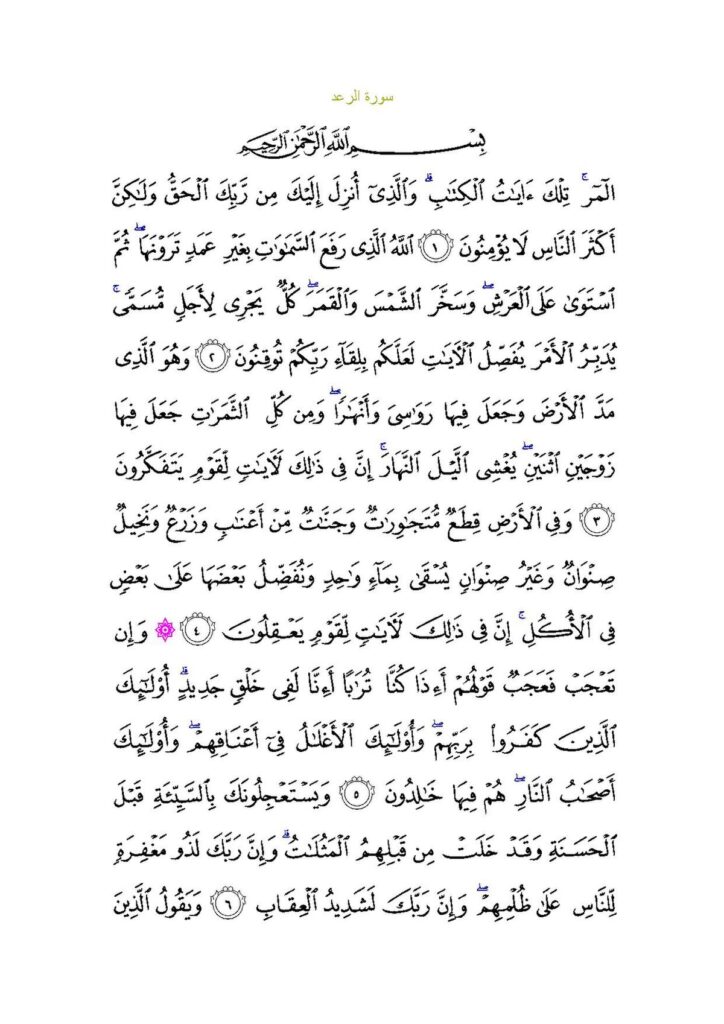 سورة الرعد
بِسْمِ اللَّهِ الرَّحْمَٰنِ الرَّحِيمِ
الٓمٓرۚ تِلْكَ ءَايَٰتُ الْكِتَٰبِۗ وَالَّذِىٓ أُنزِلَ إِلَيْكَ مِن رَّبِّكَ الْحَقُّ وَلَٰكِنَّ
أَكْثَرَ النَّاسِ لَا يُؤْمِنُونَ ١ اللَّهُ الَّذِى رَفَعَ السَّمَٰوَٰتِ بِغَيْرِ عَمَدٍ تَرَوْنَهَاۖ ثُمَّ
اسْتَوَىٰ عَلَى الْعَرْشِۖ وَسَخَّرَ الشَّمْسَ وَالْقَمَرَۖ كُلٌّ يَجْرِى لِأَجَلٍ مُّسَمًّىۚ
يُدَبِّرُ الْأَمْرَ يُفَصِّلُ الْآيَٰتِ لَعَلَّكُم بِلِقَآءِ رَبِّكُمْ تُوقِنُونَ ٢ وَهُوَ الَّذِى
مَدَّ الْأَرْضَ وَجَعَلَ فِيهَا رَوَٰسِىَ وَأَنْهَٰرًاۖ وَمِن كُلِّ الثَّمَرَٰتِ جَعَلَ فِيهَا
زَوْجَيْنِ اثْنَيْنِۖ يُغْشِى الَّيْلَ النَّهَارَۚ إِنَّ فِى ذَٰلِكَ لَآيَٰتٍ لِّقَوْمٍ يَتَفَكَّرُونَ
٣ وَفِى الْأَرْضِ قِطَعٌ مُّتَجَٰوِرَٰتٌ وَجَنَّٰتٌ مِّنْ أَعْنَٰبٍ وَزَرْعٌ وَنَخِيلٌ
صِنْوَانٌ وَغَيْرُ صِنْوَانٍ يُسْقَىٰ بِمَآءٍ وَٰحِدٍ وَنُفَضِّلُ بَعْضَهَا عَلَىٰ بَعْضٍ
فِى الْأُكُلِۚ إِنَّ فِى ذَٰلِكَ لَآيَٰتٍ لِّقَوْمٍ يَعْقِلُونَ ٤ ۞ وَإِن
تَعْجَبْ فَعَجَبٌ قَوْلُهُمْ أَءِذَا كُنَّا تُرَٰبًا أَءِنَّا لَفِى خَلْقٍ جَدِيدٍۗ أُو۟لَٰٓئِكَ
الَّذِينَ كَفَرُوا۟ بِرَبِّهِمْۖ وَأُو۟لَٰٓئِكَ الْأَغْلَٰلُ فِىٓ أَعْنَاقِهِمْۖ وَأُو۟لَٰٓئِكَ
أَصْحَٰبُ النَّارِۖ هُمْ فِيهَا خَٰلِدُونَ ٥ وَيَسْتَعْجِلُونَكَ بِالسَّيِّئَةِ قَبْلَ
الْحَسَنَةِ وَقَدْ خَلَتْ مِن قَبْلِهِمُ الْمَثُلَٰتُۗ وَإِنَّ رَبَّكَ لَذُو مَغْفِرَةٍ
لِّلنَّاسِ عَلَىٰ ظُلْمِهِمْۖ وَإِنَّ رَبَّكَ لَشَدِيدُ الْعِقَابِ ٦ وَيَقُولُ الَّذِينَ